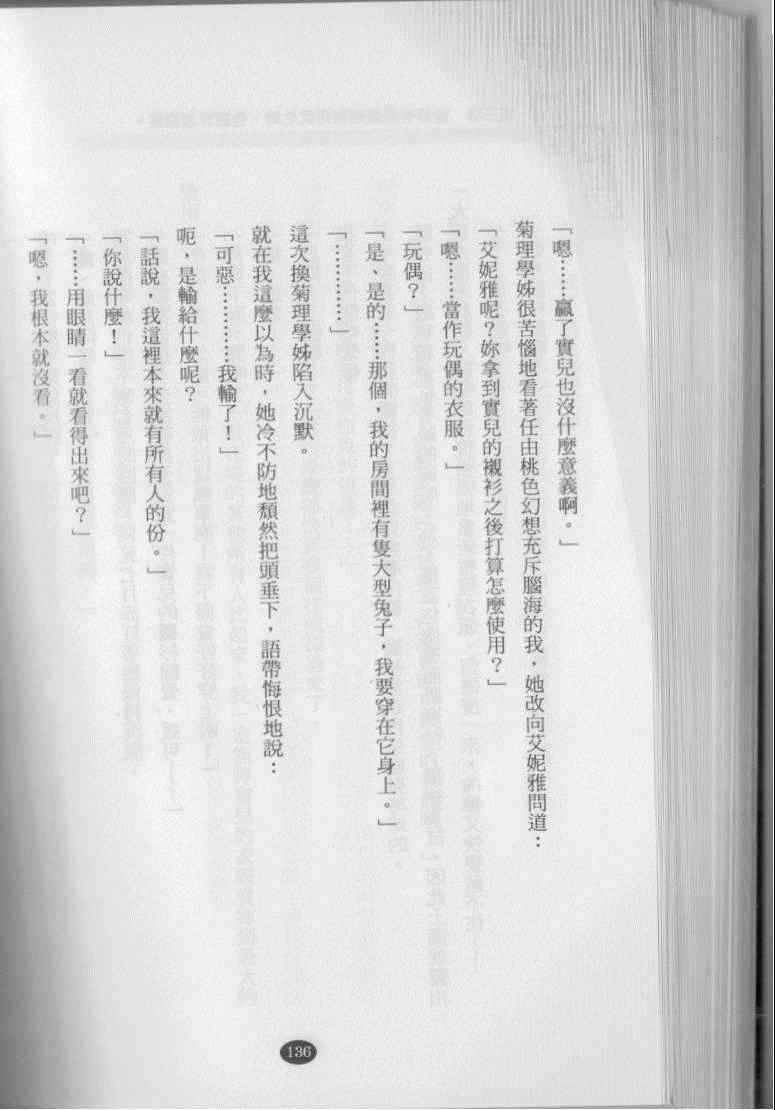 「嗯……贏了實兒也沒什麼意義啊。」
菊理學姊很苦惱地看著任由桃色幻想充斥腦海的我，她改向艾妮雅問道：
「艾妮雅呢？妳拿到實兒的襯衫之後打算怎麼使用？」
「嗯……當作玩偶的衣服。」
「玩偶？」
「是、是的……那個，我的房間裡有隻大型兔子，我要穿在它身上。」
「…………」
這次換菊理學姊陷入沉默。
就在我這麼以為時，她冷不防地頹然把頭垂下，語帶悔恨地說：
「可惡…………我輸了！」
呃，是輸給什麼呢？
「話說，我這裡本來就有所有人的份。」
「你說什麼！」
「……用眼睛一看就看得出來吧？」
「嗯，我根本就沒看。」
136